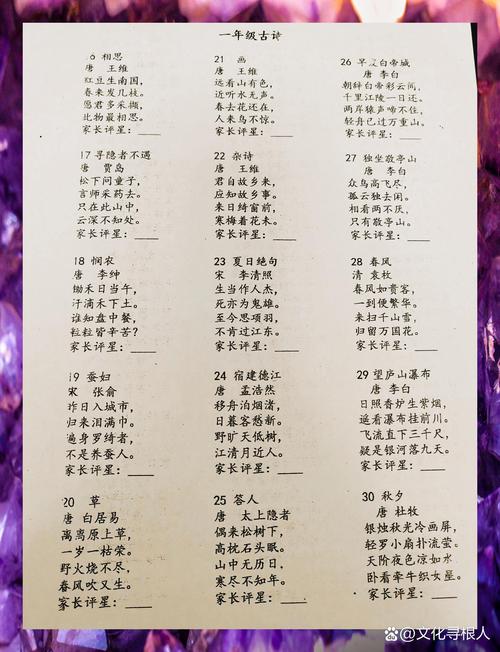 一年级古诗
6 相思
唐 王维
红豆生南国，
春来发几枝。
愿君多采撷，
此物最相思。
家长评星：____
17 寻隐者不遇
唐 贾岛
松下问童子，
言师采药去。
只在此山中，
云深不知处。
家长评星：____
18 悯农
唐 李绅
锄禾日当午，
汗滴禾下土。
谁知盘中餐，
粒粒皆辛苦？
家长评星：____
19 蚕妇
宋 张俞
昨日入城市，
归来泪满巾。
遍身罗绮者，
不是养蚕人。
家长评星：____
20 草
唐 白居易
离离原上草，
一岁一枯荣。
野火烧不尽，
春风吹又生。
家长评星：____
21 画
唐 王维
远看山有色，
近听水无声。
春去花还在，
人来鸟不惊。
家长评星：____
22 杂诗
唐 王维
君自故乡来，
应知故乡事。
来日绮窗前，
寒梅着花未。
家长评星：____
23 夏日绝句
宋 李清照
生当作人杰，
死亦为鬼雄。
至今思项羽，
不肯过江东。
家长评星：____
24 宿建德江
唐 孟浩然
移舟泊烟渚，
日暮客愁新。
野旷天低树，
江清月近人。
家长评星：____
25 答人
唐 太上隐者
偶来松树下，
高枕石头眠。
山中无历日，
寒尽不知年。
家长评星：____
26 早发白帝城
唐 李白
朝辞白帝彩云间，
千里江陵一日还。
两岸猿声啼不住，
轻舟已过万重山。
家长评星：____
27 独坐敬亭山
唐 李白
众鸟高飞尽，
孤云独去闲。
相看两不厌，
只有敬亭山。
家长评星：____
28 春风
清 袁枚
春风如贵客，
一到便繁华。
来扫千山雪，
归留万国花。
家长评星：____
29 望庐山瀑布
唐 李白
日照香炉生紫烟，
遥看瀑布挂前川。
飞流直下三千尺，
疑是银河落九天。
家长评星：____
30 秋夕
唐 杜牧
银烛秋光冷画屏，
轻罗小扇扑流萤。
天阶夜色凉如水，
卧看牵牛织女星。
家长评星：____
@文化寻根人